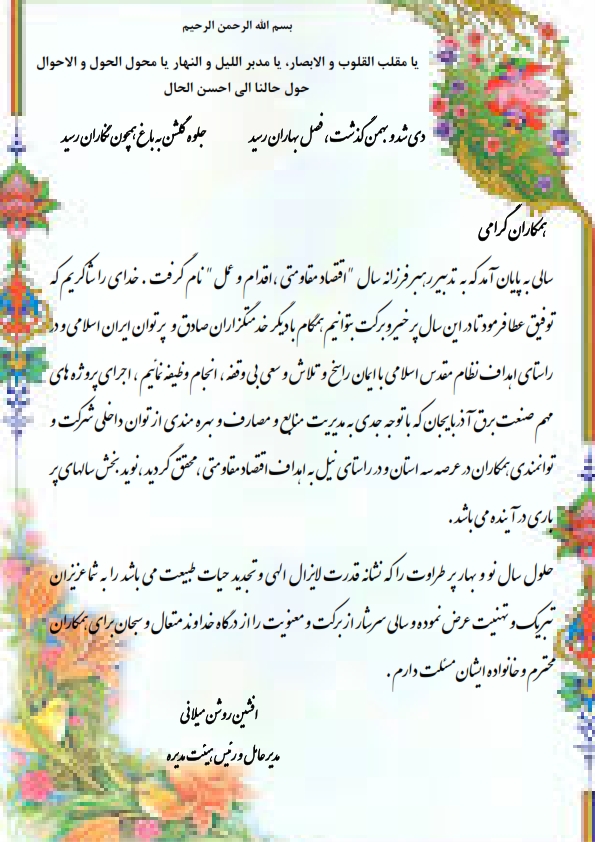 بسم الله الرحمن الرحیم
یا مقلب القلوب و الابصار، یا مدبر اللیل و النهار یا محول الحول و الاحوال
حول حالنا الی احسن الحال
دی شد و بهمن گذشت، فصل بهاران رسید جلوه گلشن به باغ همچون نگاران رسید
همکاران گرامی
سالی به پایان آمد که به تدبیر رهبر فرزانه سال "اقتصاد مقاومتی ، اقدام و عمل" نام گرفت . خدای را شاکریم که
توفیق عطا فرمود تا در این سال پر خیر و برکت بتوانیم همگام با دیگر خدمتگزاران صادق و پر توان ایران اسلامی و در
راستای اهداف نظام مقدس اسلامی با ایمان راسخ و تلاش و سعی بی وقفه ، انجام وظیفه نمائیم ، اجرای پروژه های
مهم صنعت برق آذربایجان که با توجه جدی به مدیریت منابع و مصارف و بهره مندی از توان داخلی شرکت و
توانمندی همکاران در عرصه سه استان و در راستای نیل به اهداف اقتصاد مقاومتی ، محقق گردید ، نوید بخش سالهای پر
باری در آینده می باشد .
حلول سال نو و بهار پر طراوت را که نشانه قدرت لایزال الهی و تجدید حیات طبیعت می باشد را به شما عزیزان
تبریک و تهنیت عرض نموده و سالی سرشار از برکت و معنویت را از درگاه خداوند متعال و سبحان برای همکاران
محترم و خانواده ایشان مسئلت دارم .
افشین روشن میلانی
مدیر عامل و رئیس هیئت مدیره